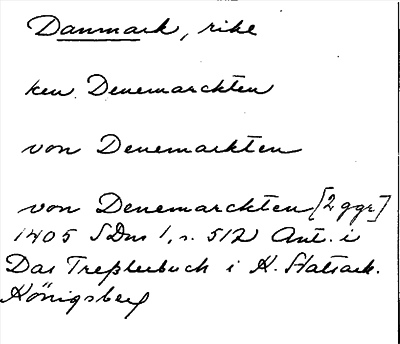 Danmark, rike
ken Denemarckten
von Denemarkten
von Denemarckten [2 ggr]
1405 SDns 1, s. 512 Ant. i
Das Treßlerbuch i K. Statsark.
Königsberg